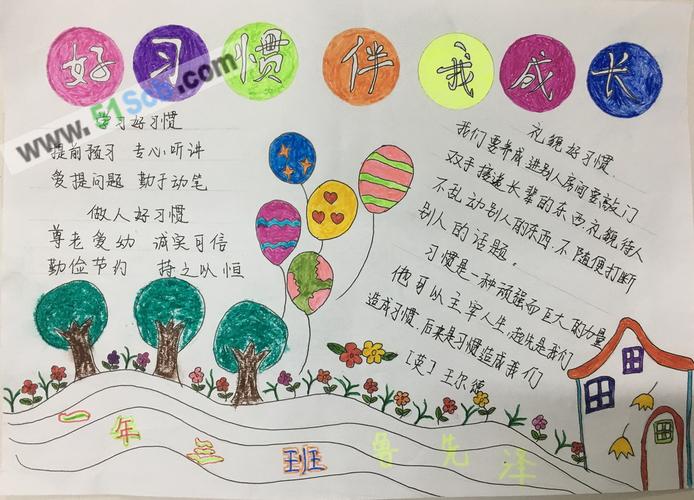 好习惯伴我成长
www.51Sos.com
学习好习惯
提前预习 专心听讲
爱提问题 勤于动笔
做人好习惯
尊老爱幼 诚实可信
勤俭节约 持之以恒
礼貌好习惯
我们要养成进别人房间要敲门
双手接递长辈的东西.礼貌待人
不乱动别人的东西.不随便打断
别人的话题。
习惯是一种顽强而巨大的力量
他可以主宰人生,起先是我们
造成习惯,后来是习惯造成我们
[英]王尔德
一年三班 鲁先泽